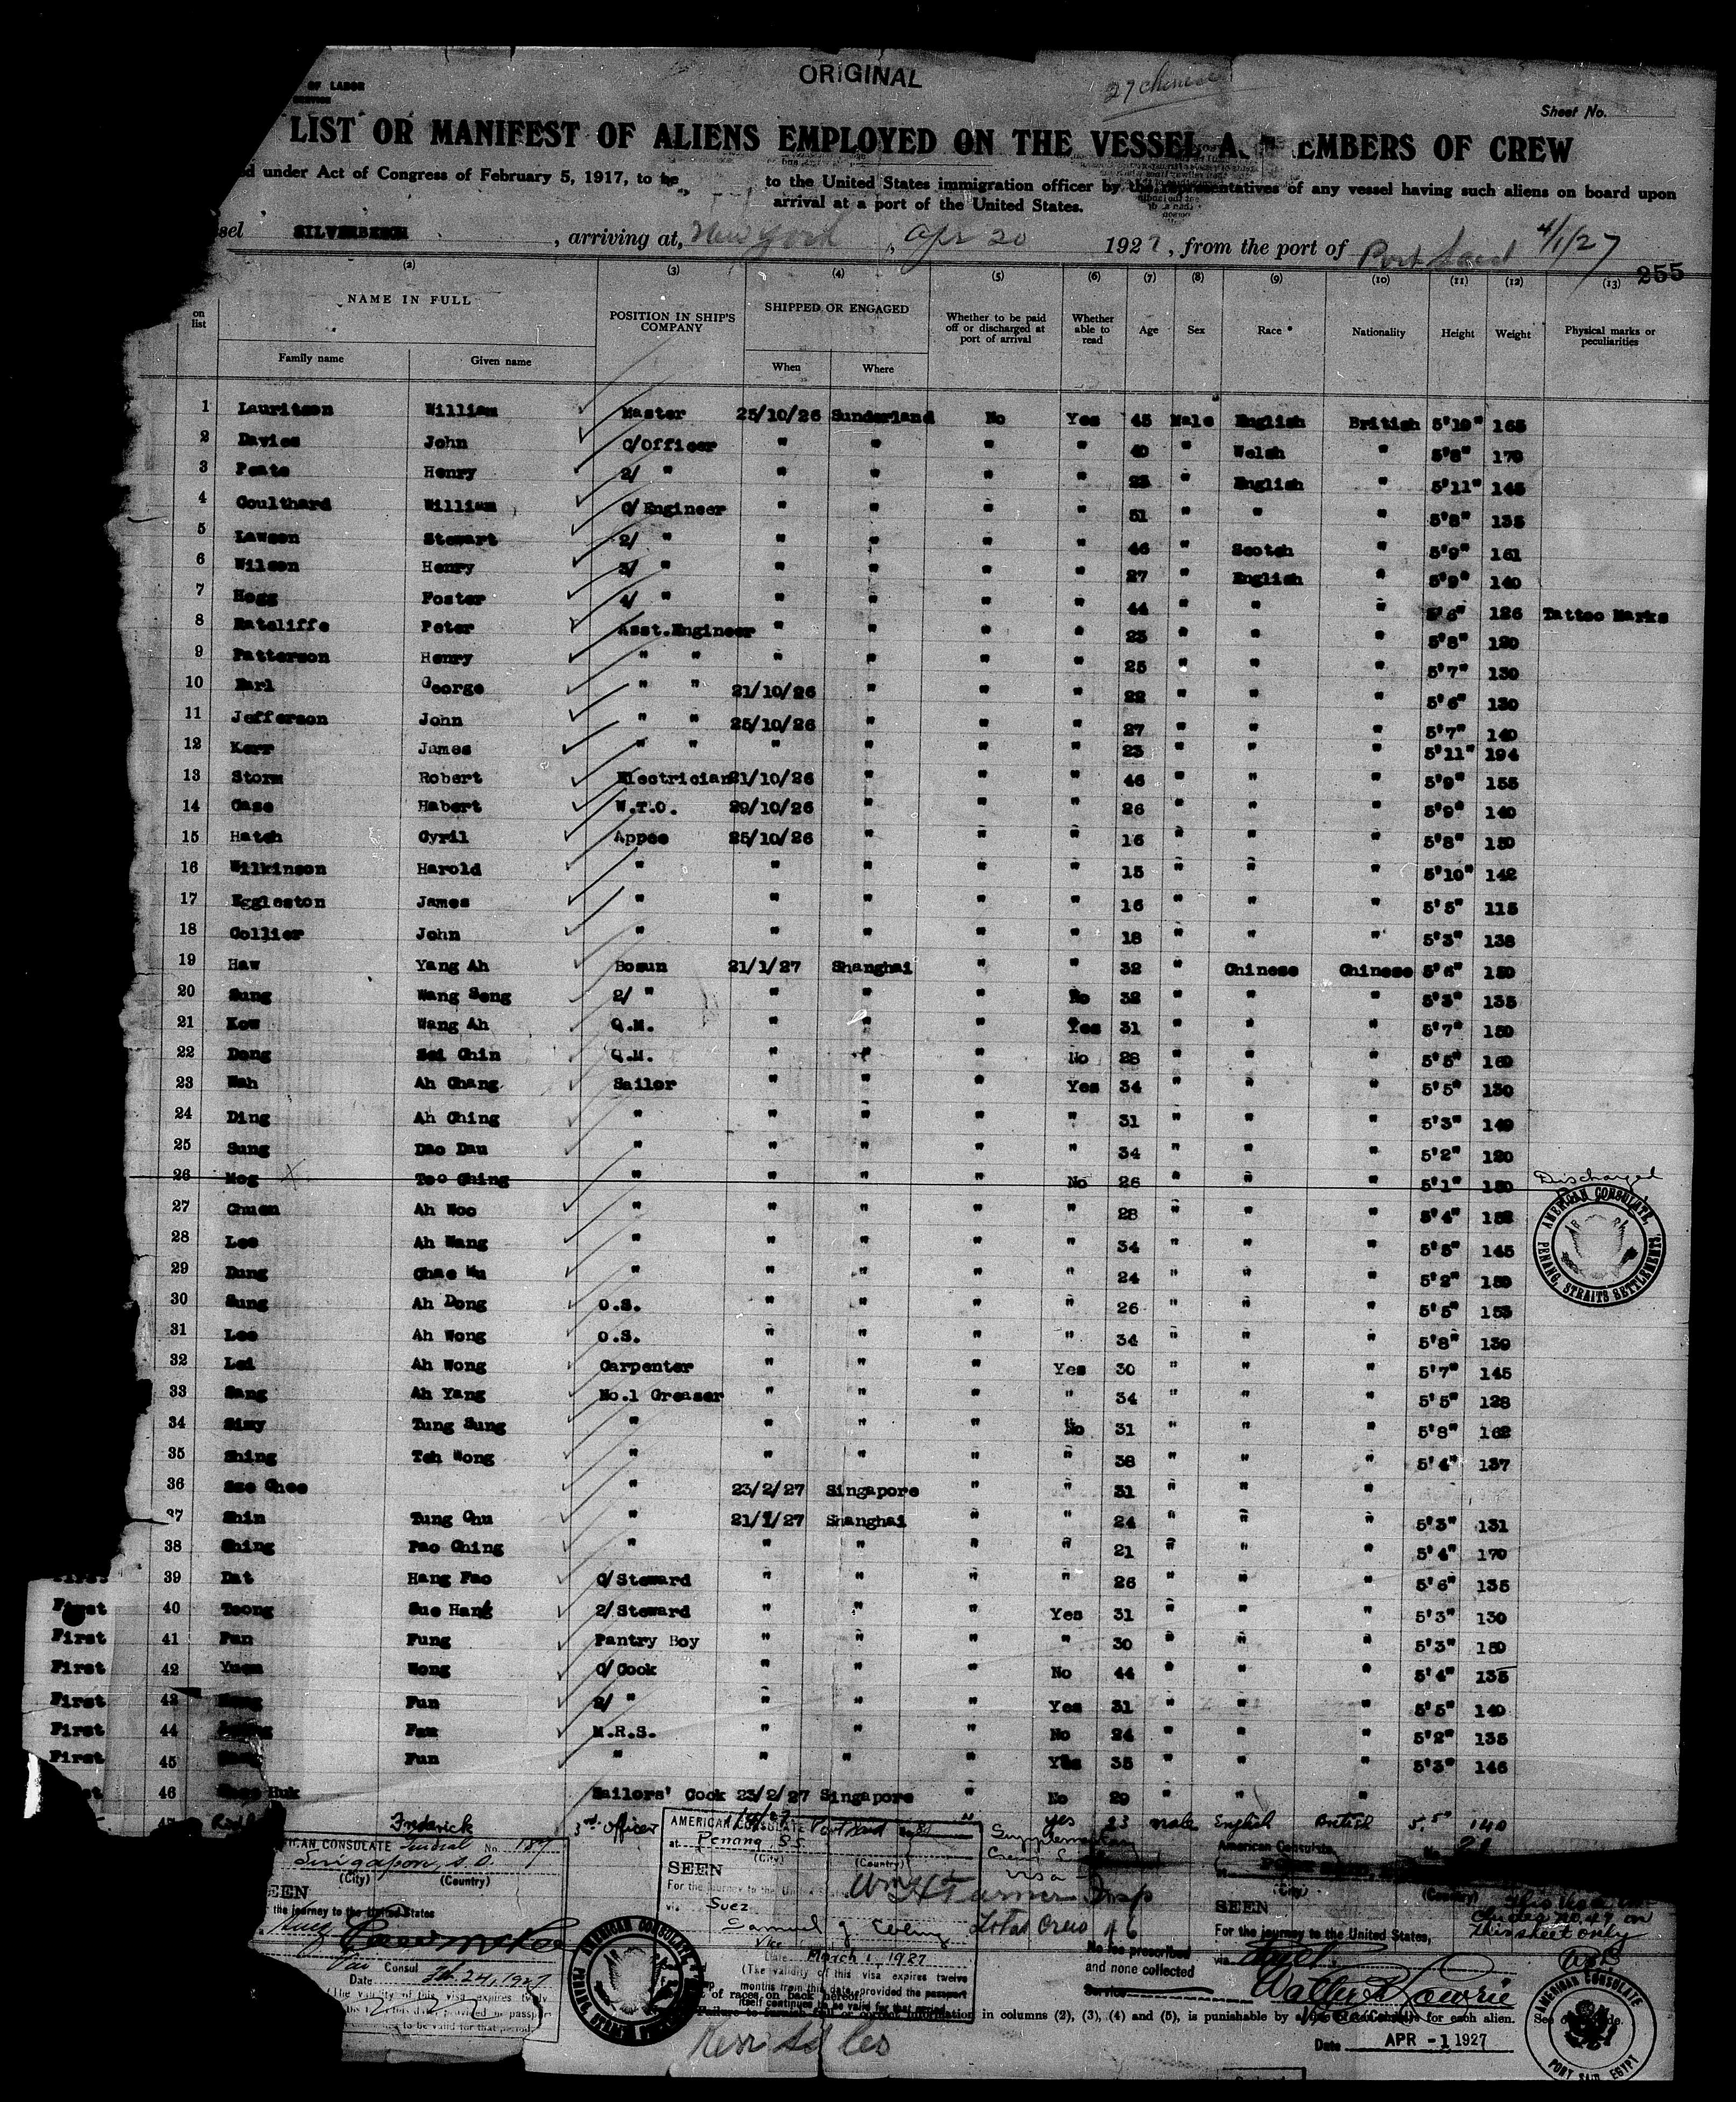 ORIGINAL
27 Chinese
OF LABOR
Sheet No.
LIST OR MANIFEST OF ALIENS EMPLOYED ON THE VESSEL A EMBERS OF CREW
d under Act of Congress of February 5, 1917, to be to the United States immigration officer by the representatives of any vessel having such aliens on board upon
arrival at a port of the United States.
sel SILVERBEECH , arriving at, New York , Apr 20 1927, from the port of Port Said 4/1/27
255
(2) (3) (4) (5) (6) (7) (8) (9) (10) (11) (12) (13)
on list NAME IN FULL POSITION IN SHIP'S COMPANY SHIPPED OR ENGAGED Whether to be paid off or discharged at port of arrival Whether able to read Age Sex Race * Nationality Height Weight Physical marks or peculiarities
Family name Given name When Where
1 Lauritson William Master 25/10/26 Sunderland No Yes 45 Male English British 5'10" 165
2 Davies John C/Officer " " " " 40 " Welsh " 5'8" 170
3 Peate Henry 2/ " " " " " 23 " English " 5'11" 145
4 Coulthard William C/Engineer " " " " 51 " " " 5'8" 135
5 Lawson Stewart 2/ " " " " " 46 " Scotch " 5'9" 161
6 Wilson Henry 3/ " " " " " 27 " English " 5'9" 140
7 Hogg Foster 4/ " " " " " 44 " " " 5'6" 126 Tattoo Marks
8 Ratcliffe Peter Asst.Engineer " " " " 23 " " " 5'8" 120
9 Patterson Henry " " " " " " 25 " " " 5'7" 130
10 Earl George " " 21/10/26 " " " 22 " " " 5'6" 130
11 Jefferson John " " 25/10/26 " " " 27 " " " 5'7" 140
12 Kerr James " " " " " " 23 " " " 5'11" 194
13 Storm Robert Electrician 21/10/26 " " " 46 " " " 5'9" 155
14 Case Habert W.T.O. 29/10/26 " " " 26 " " " 5'9" 140
15 Hatch Cyril Appce 25/10/26 " " " 16 " " " 5'8" 150
16 Wilkinson Harold " " " " " 15 " " " 5'10" 142
17 Eggleston James " " " " " 16 " " " 5'5" 115
18 Collier John " " " " " 18 " " " 5'3" 138
19 Haw Yang Ah Bosun 21/1/27 Shanghai " " 32 " Chinese Chinese 5'6" 150
20 Sung Wang Seng 2/ " " " " No 32 " " " 5'3" 135
21 Kow Wang Ah Q.M. " " " Yes 31 " " " 5'7" 150
22 Dong Sei Chin Q.M. " " " No 28 " " " 5'5" 160
23 Wah Ah Chang Sailor " " " Yes 34 " " " 5'5" 130
24 Ding Ah Ching " " " " " 31 " " " 5'3" 140
25 Sung Dao Dau " " " " " 34 " " " 5'2" 120
26 Mog X Tso Ching " " " " No 26 " " " 5'1" 150 Discharged
27 Chuen Ah Woo " " " " " 28 " " " 5'4" 152
28 Lee Ah Wang " " " " " 34 " " " 5'5" 145
29 Dung Chae Wu " " " " " 24 " " " 5'2" 150
30 Sung Ah Dong O.S. " " " " 26 " " " 5'5" 153
31 Lee Ah Wong O.S. " " " " 34 " " " 5'8" 139
32 Lei Ah Wong Carpenter " " " Yes 30 " " " 5'7" 145
33 Sang Ah Yang No.1 Greaser " " " " 34 " " " 5'5" 128
34 Simy Tung Sung " " " " No 31 " " " 5'8" 162
35 Shing Teh Wong " " " " " 38 " " " 5'4" 137
36 Sze Chee " 23/2/27 Singapore " " 31 " " "
37 Shin Tung Chu " 21/1/27 Shanghai " " 24 " " " 5'3" 131
38 Ching Pao Ching " " " " " 21 " " " 5'4" 170
39 Dat Hang Fao C/Steward " " " " 26 " " " 5'6" 135
First 40 Tsong Sue Hang 2/Steward " " " Yes 31 " " " 5'3" 130
First 41 Fun Fung Pantry Boy " " " " 30 " " " 5'3" 150
First 42 Yuen Wong C/Cook " " " No 44 " " " 5'4" 135
First 43 Fun 2/ " " " " Yes 31 " " " 5'5" 140
First 44 Fan M.R.S. " " " No 24 " " " 5'2" 135
First 45 Fun " " " " Yes 35 " " " 5'3" 146
46 Huk Sailors' Cook 23/2/27 Singapore " No 29 " " "
47 Frederick 3rd officer Port Said " yes 23 male English British 5'5" 140
AMERICAN CONSULATE, PENANG, STRAITS SETTLEMENTS.
ICAN CONSULATE General No. 187
Singapore, S.S.
(City) (Country)
EEN
the journey to the United States
Suez
Vice Consul
Date Feb 24, 1927
(The validity of this visa expires twelve
AMERICAN CONSULATE
at Penang S.S.
(City) (Country)
SEEN
For the journey to the United States
via Suez
Samuel G. Ebling
Vice
Date March 1, 1927
(The validity of this visa expires twelve
months from this date, provided the passport
itself continues to be valid for that period.)
Supplemental
Crew
Visa
Wm H Turner Insp
Total Crew 46
No fee prescribed
and none collected
American Consulate
(City) (Country)
SEEN
For the journey to the United States,
via Suez
this sheet only
Date APR -1 1927
of races on back hereof.
Failure to furnish full or correct information in columns (2), (3), (4) and (5), is punishable by a for each alien. See
AMERICAN CONSULATE PORT SAID, EGYPT